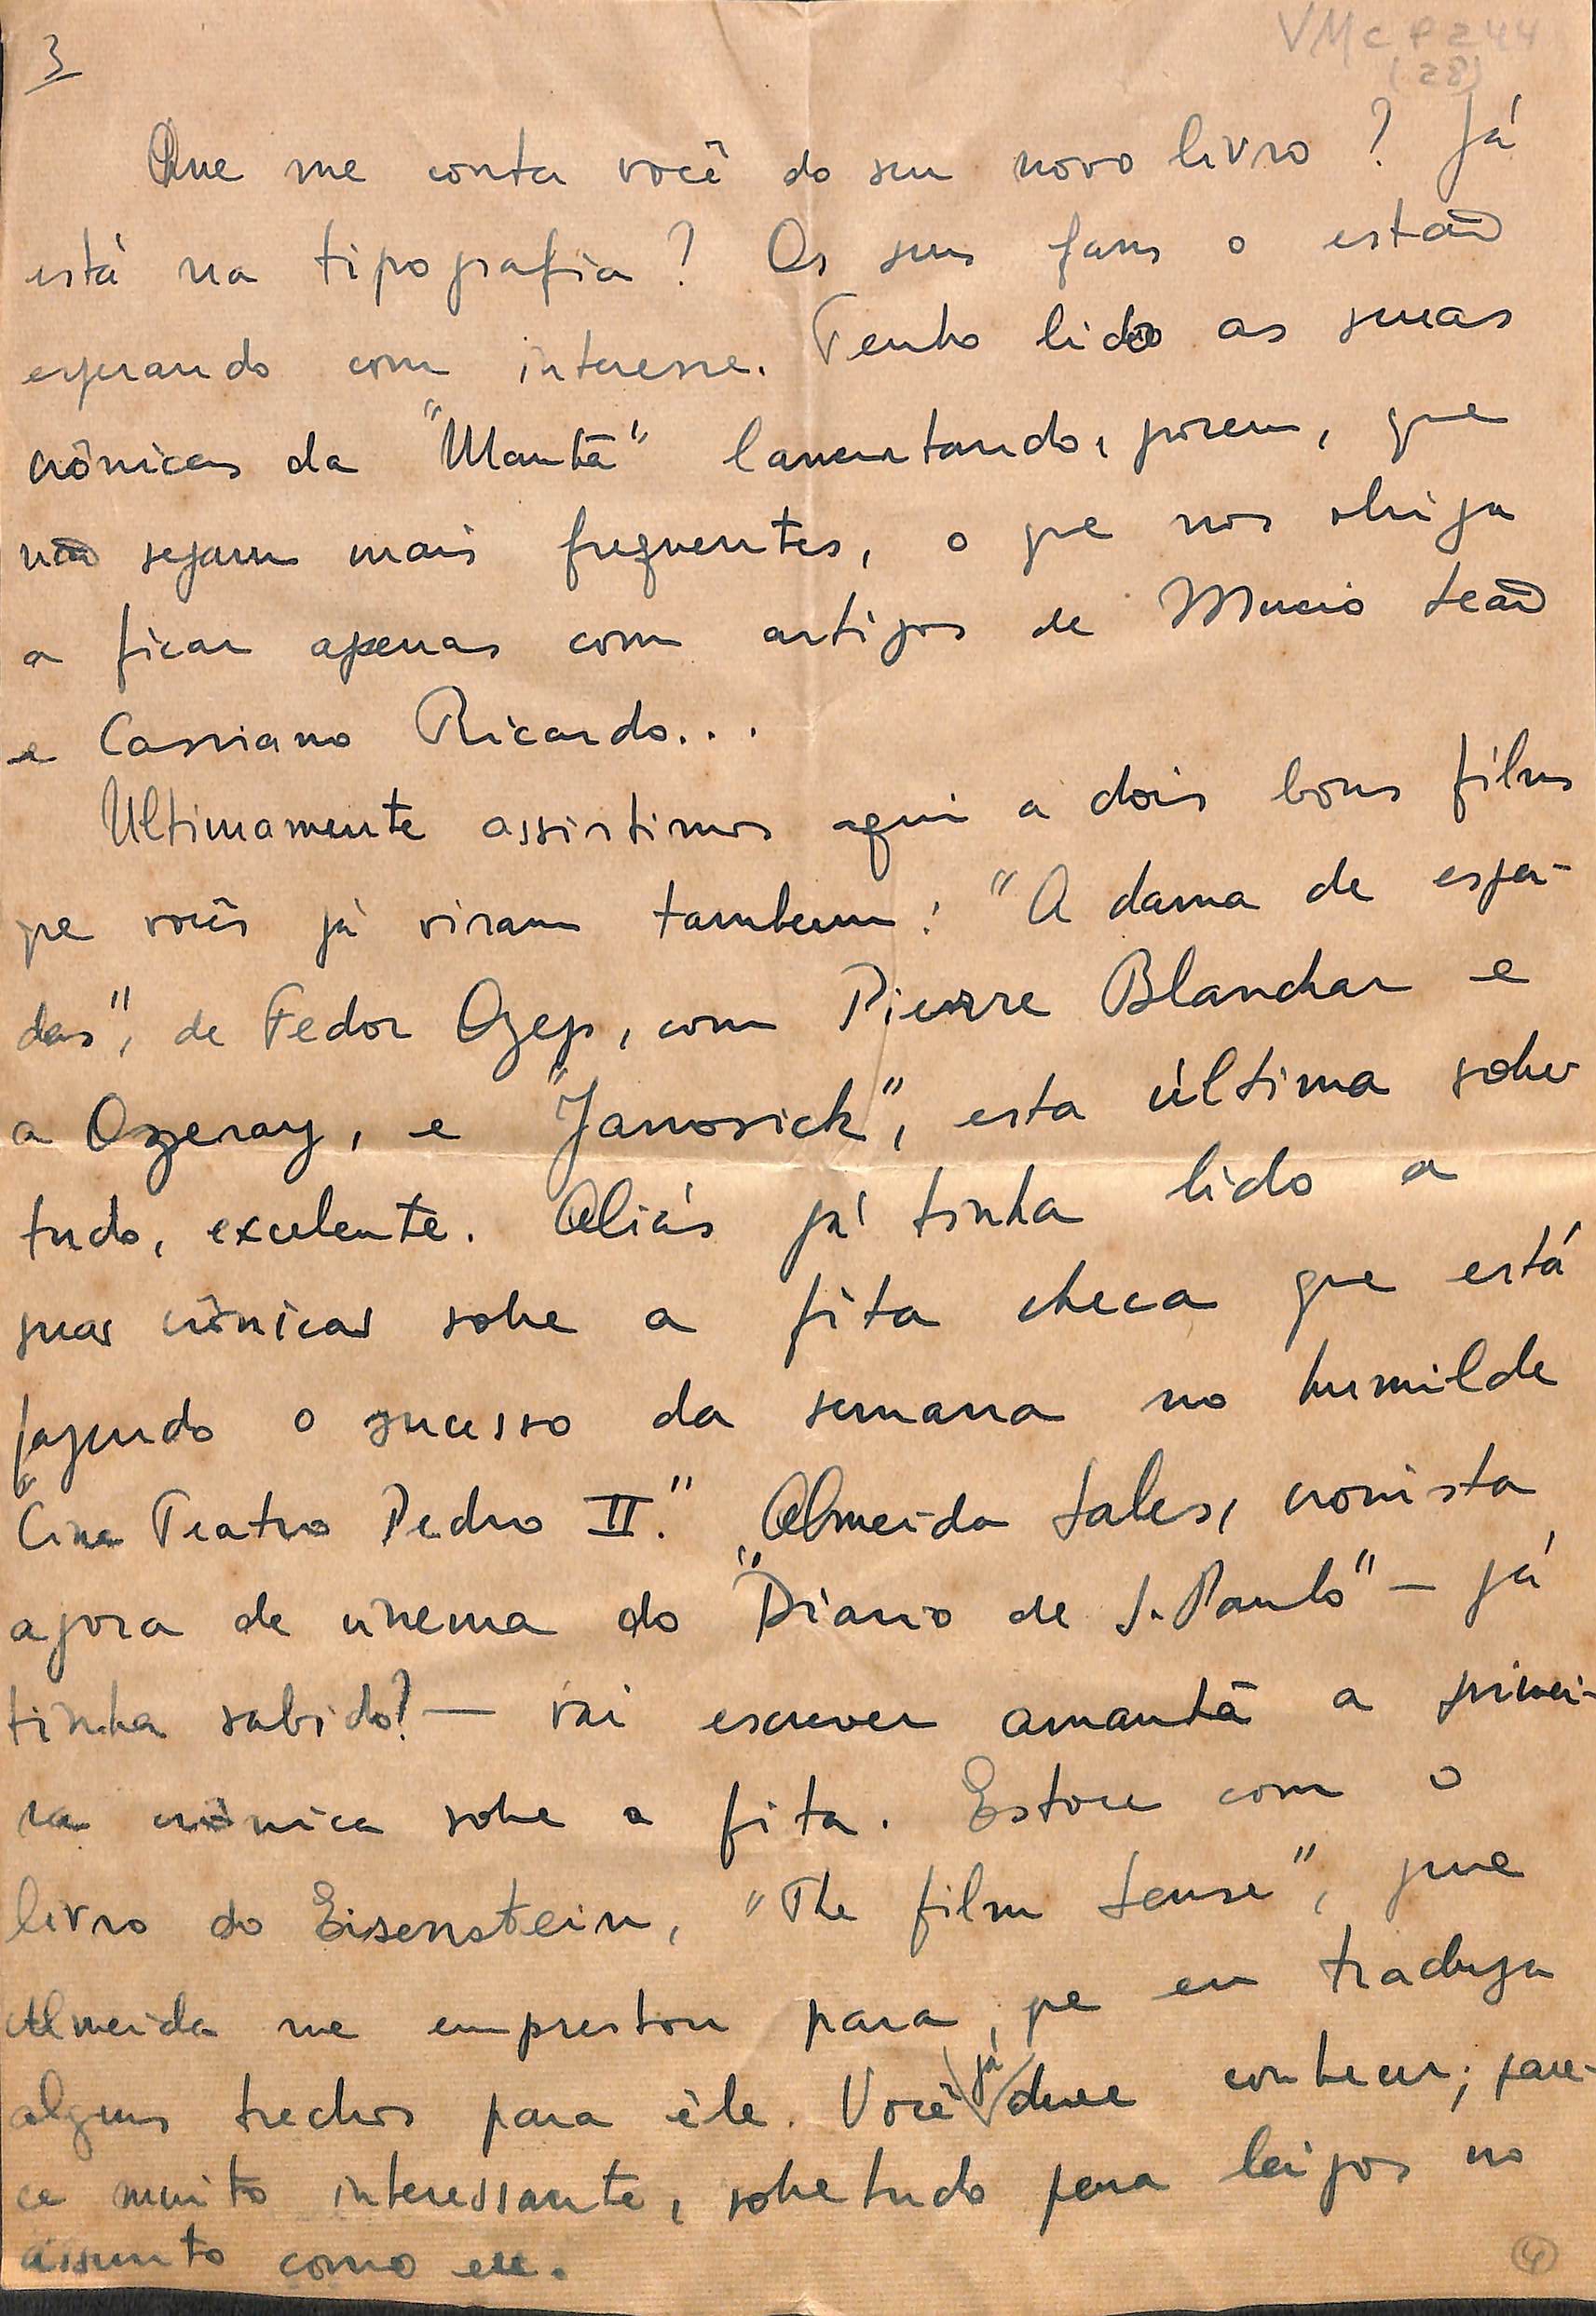 3
VMcP244
(28)
Que me conta você do seu novo livro? Já
está na tipografia? Os seus fans o estão
esperando com interesse. Tenho lido as suas
crônicas da "Manhã" lamentando, porem, que
não sejam mais frequentes, o que nos obriga
a ficar apenas com artigos de Mucio Leão
e Cassiano Ricardo...
Ultimamente assistimos aqui a dois bons films
que vocês já viram tambem: "A dama de espa-
das", de Fedor Ozep, com Pierre Blanchar e
a Ozeray, e "Janosick", esta última sobre
tudo, excelente. Aliás já tinha lido a
suas crônicas sobre a fita checa que está
fazendo o sucesso da semana no humilde
"Cine Teatro Pedro II." Almeida Sales, cronista
agora de cinema do "Diario de S. Paulo" — já
tinha sabido? — vai escrever amanhã a primei-
ra crônica sobre a fita. Estou com o
livro do Eisenstein, "The film sense", que
Almeida me emprestou para que eu traduza
alguns trechos para êle. Você já deve conhecer; pare-
ce muito interessante, sobretudo para leigos no
assunto como eu.
4